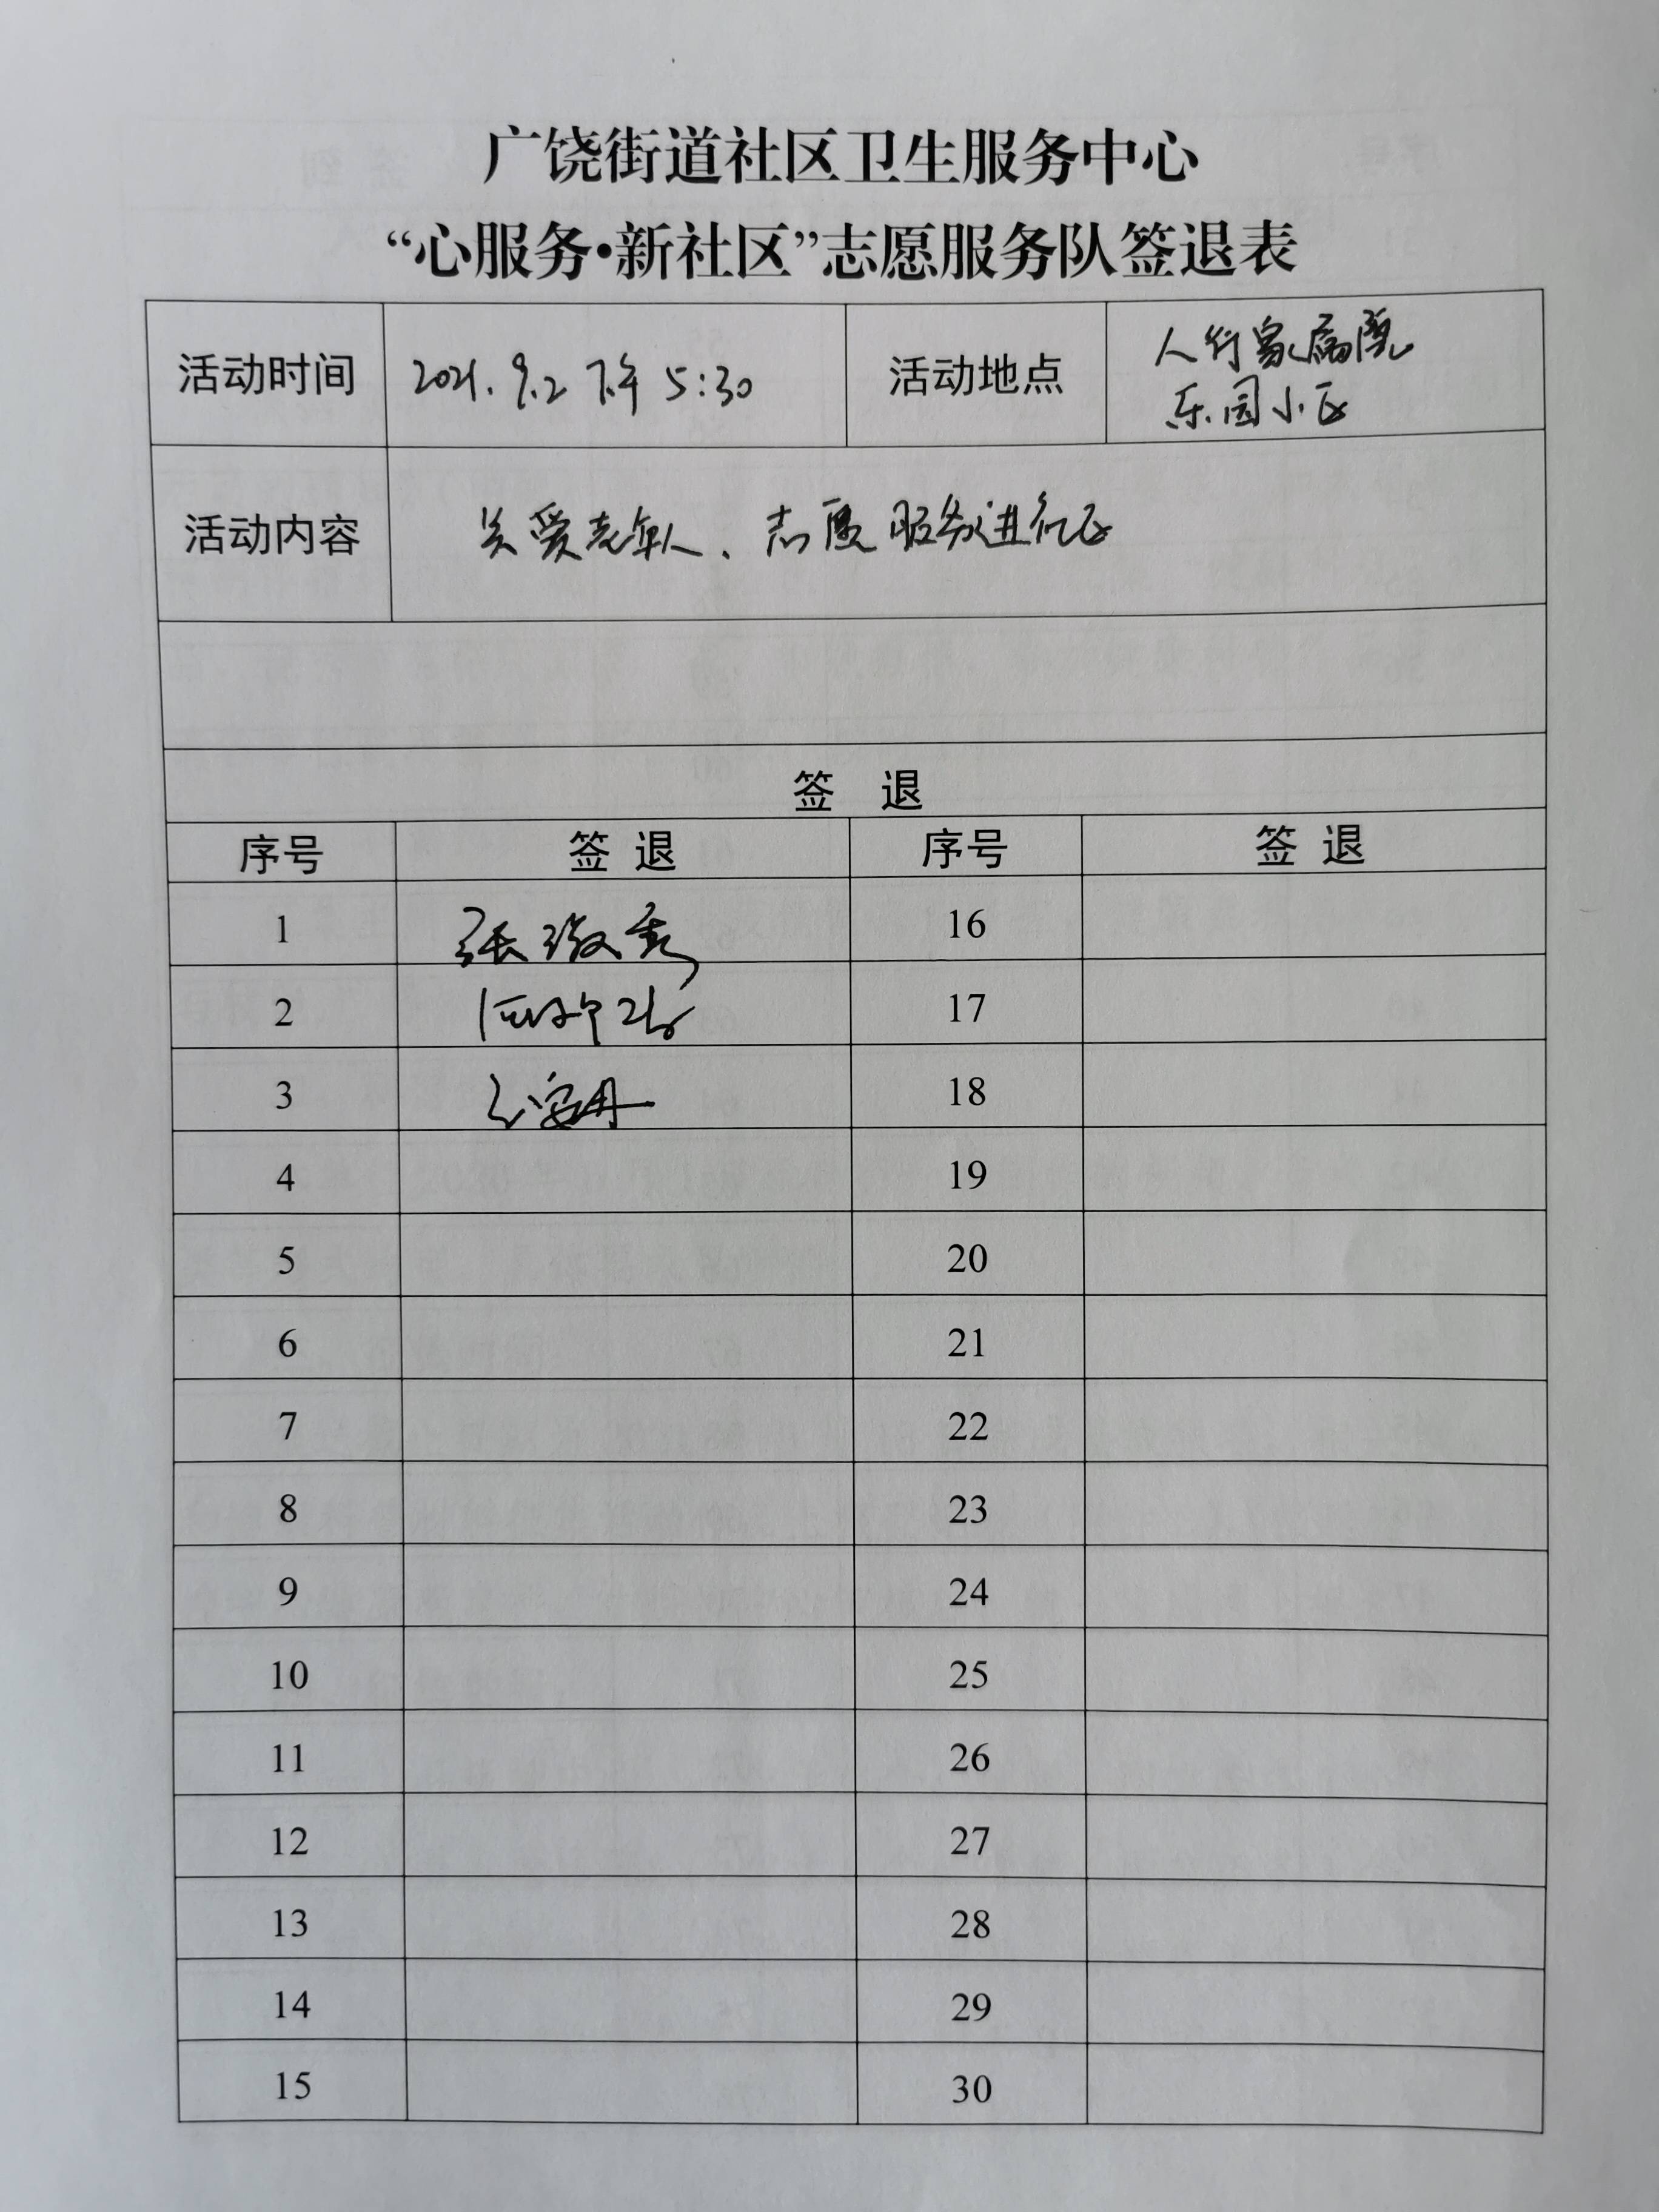 广饶街道社区卫生服务中心
“心服务·新社区”志愿服务队签退表
活动时间 2021.9.2 下午 5:30 活动地点 人行家属院
乐园小区
活动内容 关爱老年人、志愿服务进社区
签 退
序号 签 退 序号 签 退
1 张 秀 16
2 17
3 18
4 19
5 20
6 21
7 22
8 23
9 24
10 25
11 26
12 27
13 28
14 29
15 30